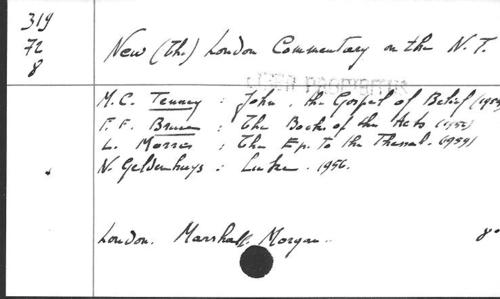 319
72
8
New (The) London Commentary on the N.T.
M.C. Tenney : John, the Gospel of Belief
F.F. Bruce : The Book of the Acts
L. Morris : The Ep. to the Thessal. (1959)
N. Geldenhuys : Luke. 1956.
London. Marshall Morgan. 8°